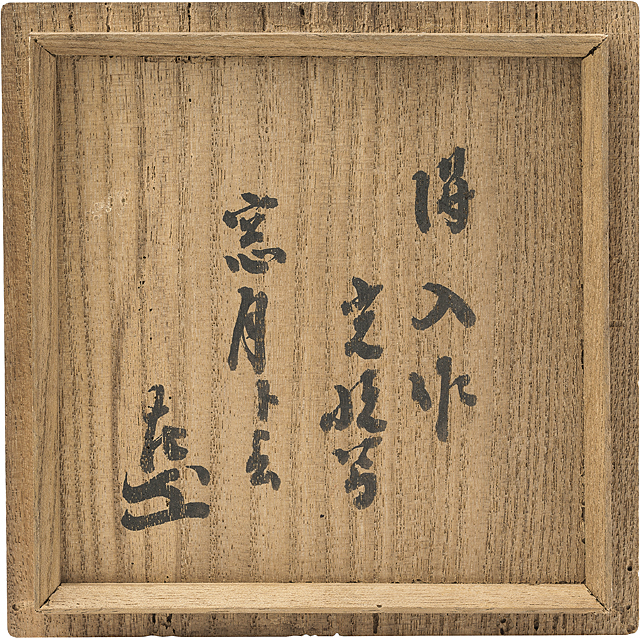 得入作
光悦写
窓月ト云